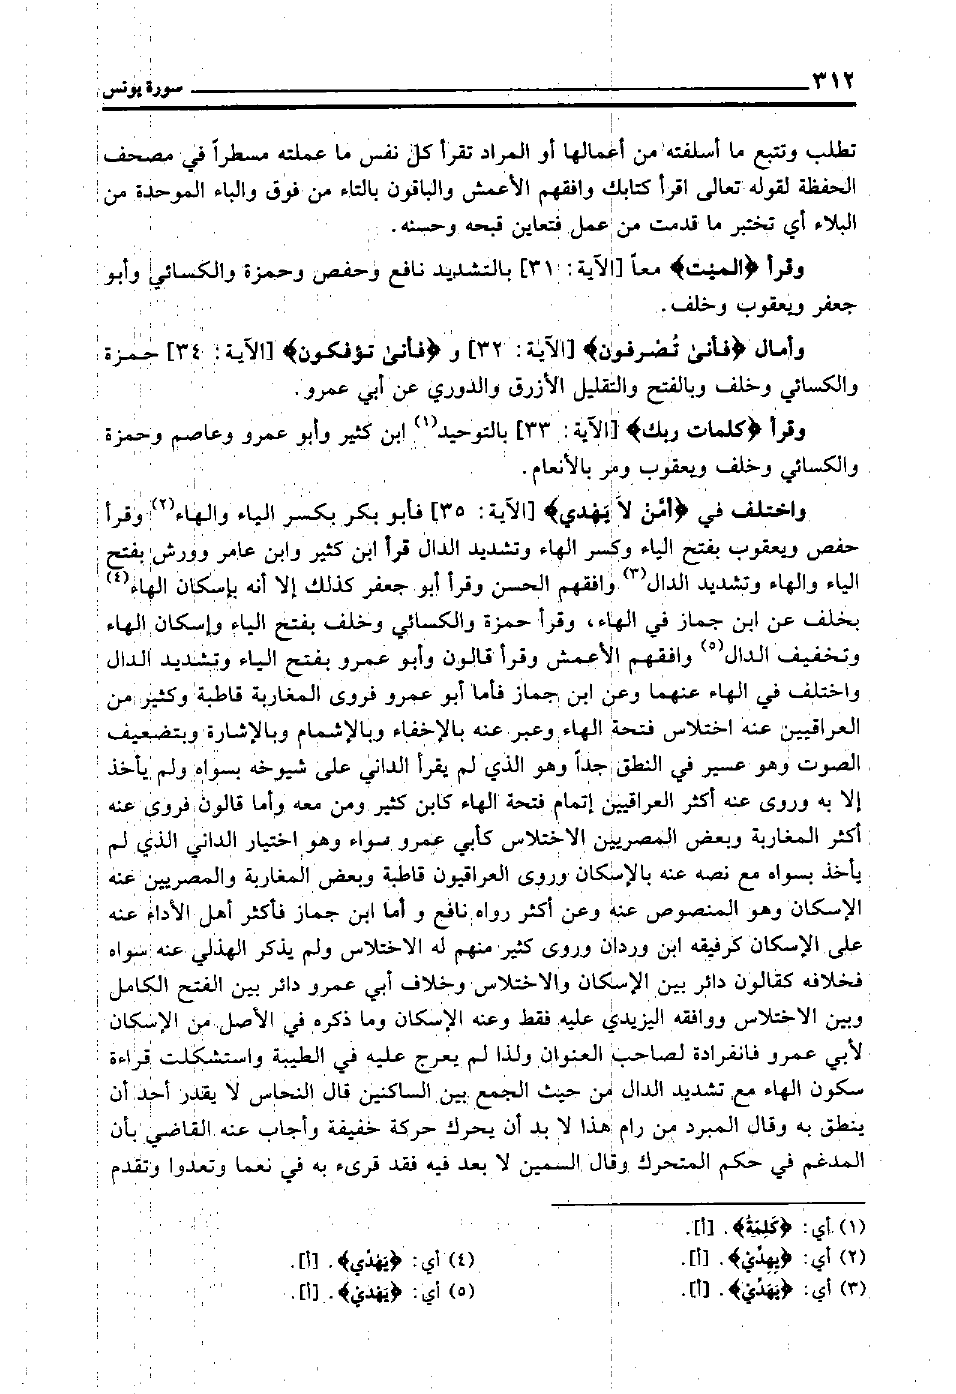 ٣١٢ سورة يونس
تطلب وتتبع ما أسلفته من أعمالها أو المراد تقرأ كل نفس ما عملته مسطراً في مصحف
الحفظة لقوله تعالى اقرأ كتابك وافقهم الأعمش والباقون بالتاء من فوق والباء الموحدة من
البلاء أي تختبر ما قدمت من عمل فتعاين قبحه وحسنه.
وقرأ ﴿الميت﴾ معاً [الآية: ٣١] بالتشديد نافع وحفص وحمزة والكسائي وأبو
جعفر ويعقوب وخلف.
وأمال ﴿فأنىٰ تُصْرفون﴾ [الآية: ٣٢] و ﴿فأنىٰ تؤفكون﴾ [الآية: ٣٤] حمزة
والكسائي وخلف وبالفتح والتقليل الأزرق والدوري عن أبي عمرو.
وقرأ ﴿كلمات ربك﴾ [الآية: ٣٣] بالتوحيد(١) ابن كثير وأبو عمرو وعاصم وحمزة
والكسائي وخلف ويعقوب ومر بالأنعام.
واختلف في ﴿أمّنْ لاَ يَهْدي﴾ [الآية: ٣٥] فأبو بكر بكسر الياء والهاء(٢) وقرأ
حفص ويعقوب بفتح الياء وكسر الهاء وتشديد الدال قرأ ابن كثير وابن عامر وورش بفتح
الياء والهاء وتشديد الدال(٣) وافقهم الحسن وقرأ أبو جعفر كذلك إلا أنه بإسكان الهاء(٤)
بخلف عن ابن جماز في الهاء، وقرأ حمزة والكسائي وخلف بفتح الياء وإسكان الهاء
وتخفيف الدال(٥) وافقهم الأعمش وقرأ قالون وأبو عمرو بفتح الياء وتشديد الدال
واختلف في الهاء عنهما وعن ابن جماز فأما أبو عمرو فروى المغاربة قاطبة وكثير من
العراقيين عنه اختلاس فتحة الهاء وعبر عنه بالإخفاء وبالإشمام وبالإشارة وبتضعيف
الصوت وهو عسير في النطق جداً وهو الذي لم يقرأ الداني على شيوخه بسواه ولم يأخذ
إلا به وروى عنه أكثر العراقيين إتمام فتحة الهاء كابن كثير ومن معه وأما قالون فروى عنه
أكثر المغاربة وبعض المصريين الاختلاس كأبي عمرو سواء وهو اختيار الداني الذي لم
يأخذ بسواه مع نصه عنه بالإسكان وروى العراقيون قاطبة وبعض المغاربة والمصريين عنه
الإسكان وهو المنصوص عنه وعن أكثر رواه نافع و أما ابن جماز فأكثر أهل الأداء عنه
على الإسكان كرفيقه ابن وردان وروى كثير منهم له الاختلاس ولم يذكر الهذلي عنه سواه
فخلافه كقالون دائر بين الإسكان والاختلاس وخلاف أبي عمرو دائر بين الفتح الكامل
وبين الاختلاس ووافقه اليزيدي عليه فقط وعنه الإسكان وما ذكره في الأصل من الإسكان
لأبي عمرو فانفرادة لصاحب العنوان ولذا لم يعرج عليه في الطيبة واستشكلت قراءة
سكون الهاء مع تشديد الدال من حيث الجمع بين الساكنين قال النحاس لا يقدر أحد أن
ينطق به وقال المبرد من رام هذا لا بد أن يحرك حركة خفيفة وأجاب عنه القاضي بأن
المدغم في حكم المتحرك وقال السمين لا بعد فيه فقد قرىء به في نعما وتعدوا وتقدم
(١) أي: ﴿كَلِمَةُ﴾. [أ].
(٢) أي: ﴿يِهِدِّيْ﴾. [أ].
(٣) أي: ﴿يَهَدِّيْ﴾. [أ].
(٤) أي: ﴿يَهْدِّي﴾. [أ].
(٥) أي: ﴿يَهْدِيْ﴾. [أ].